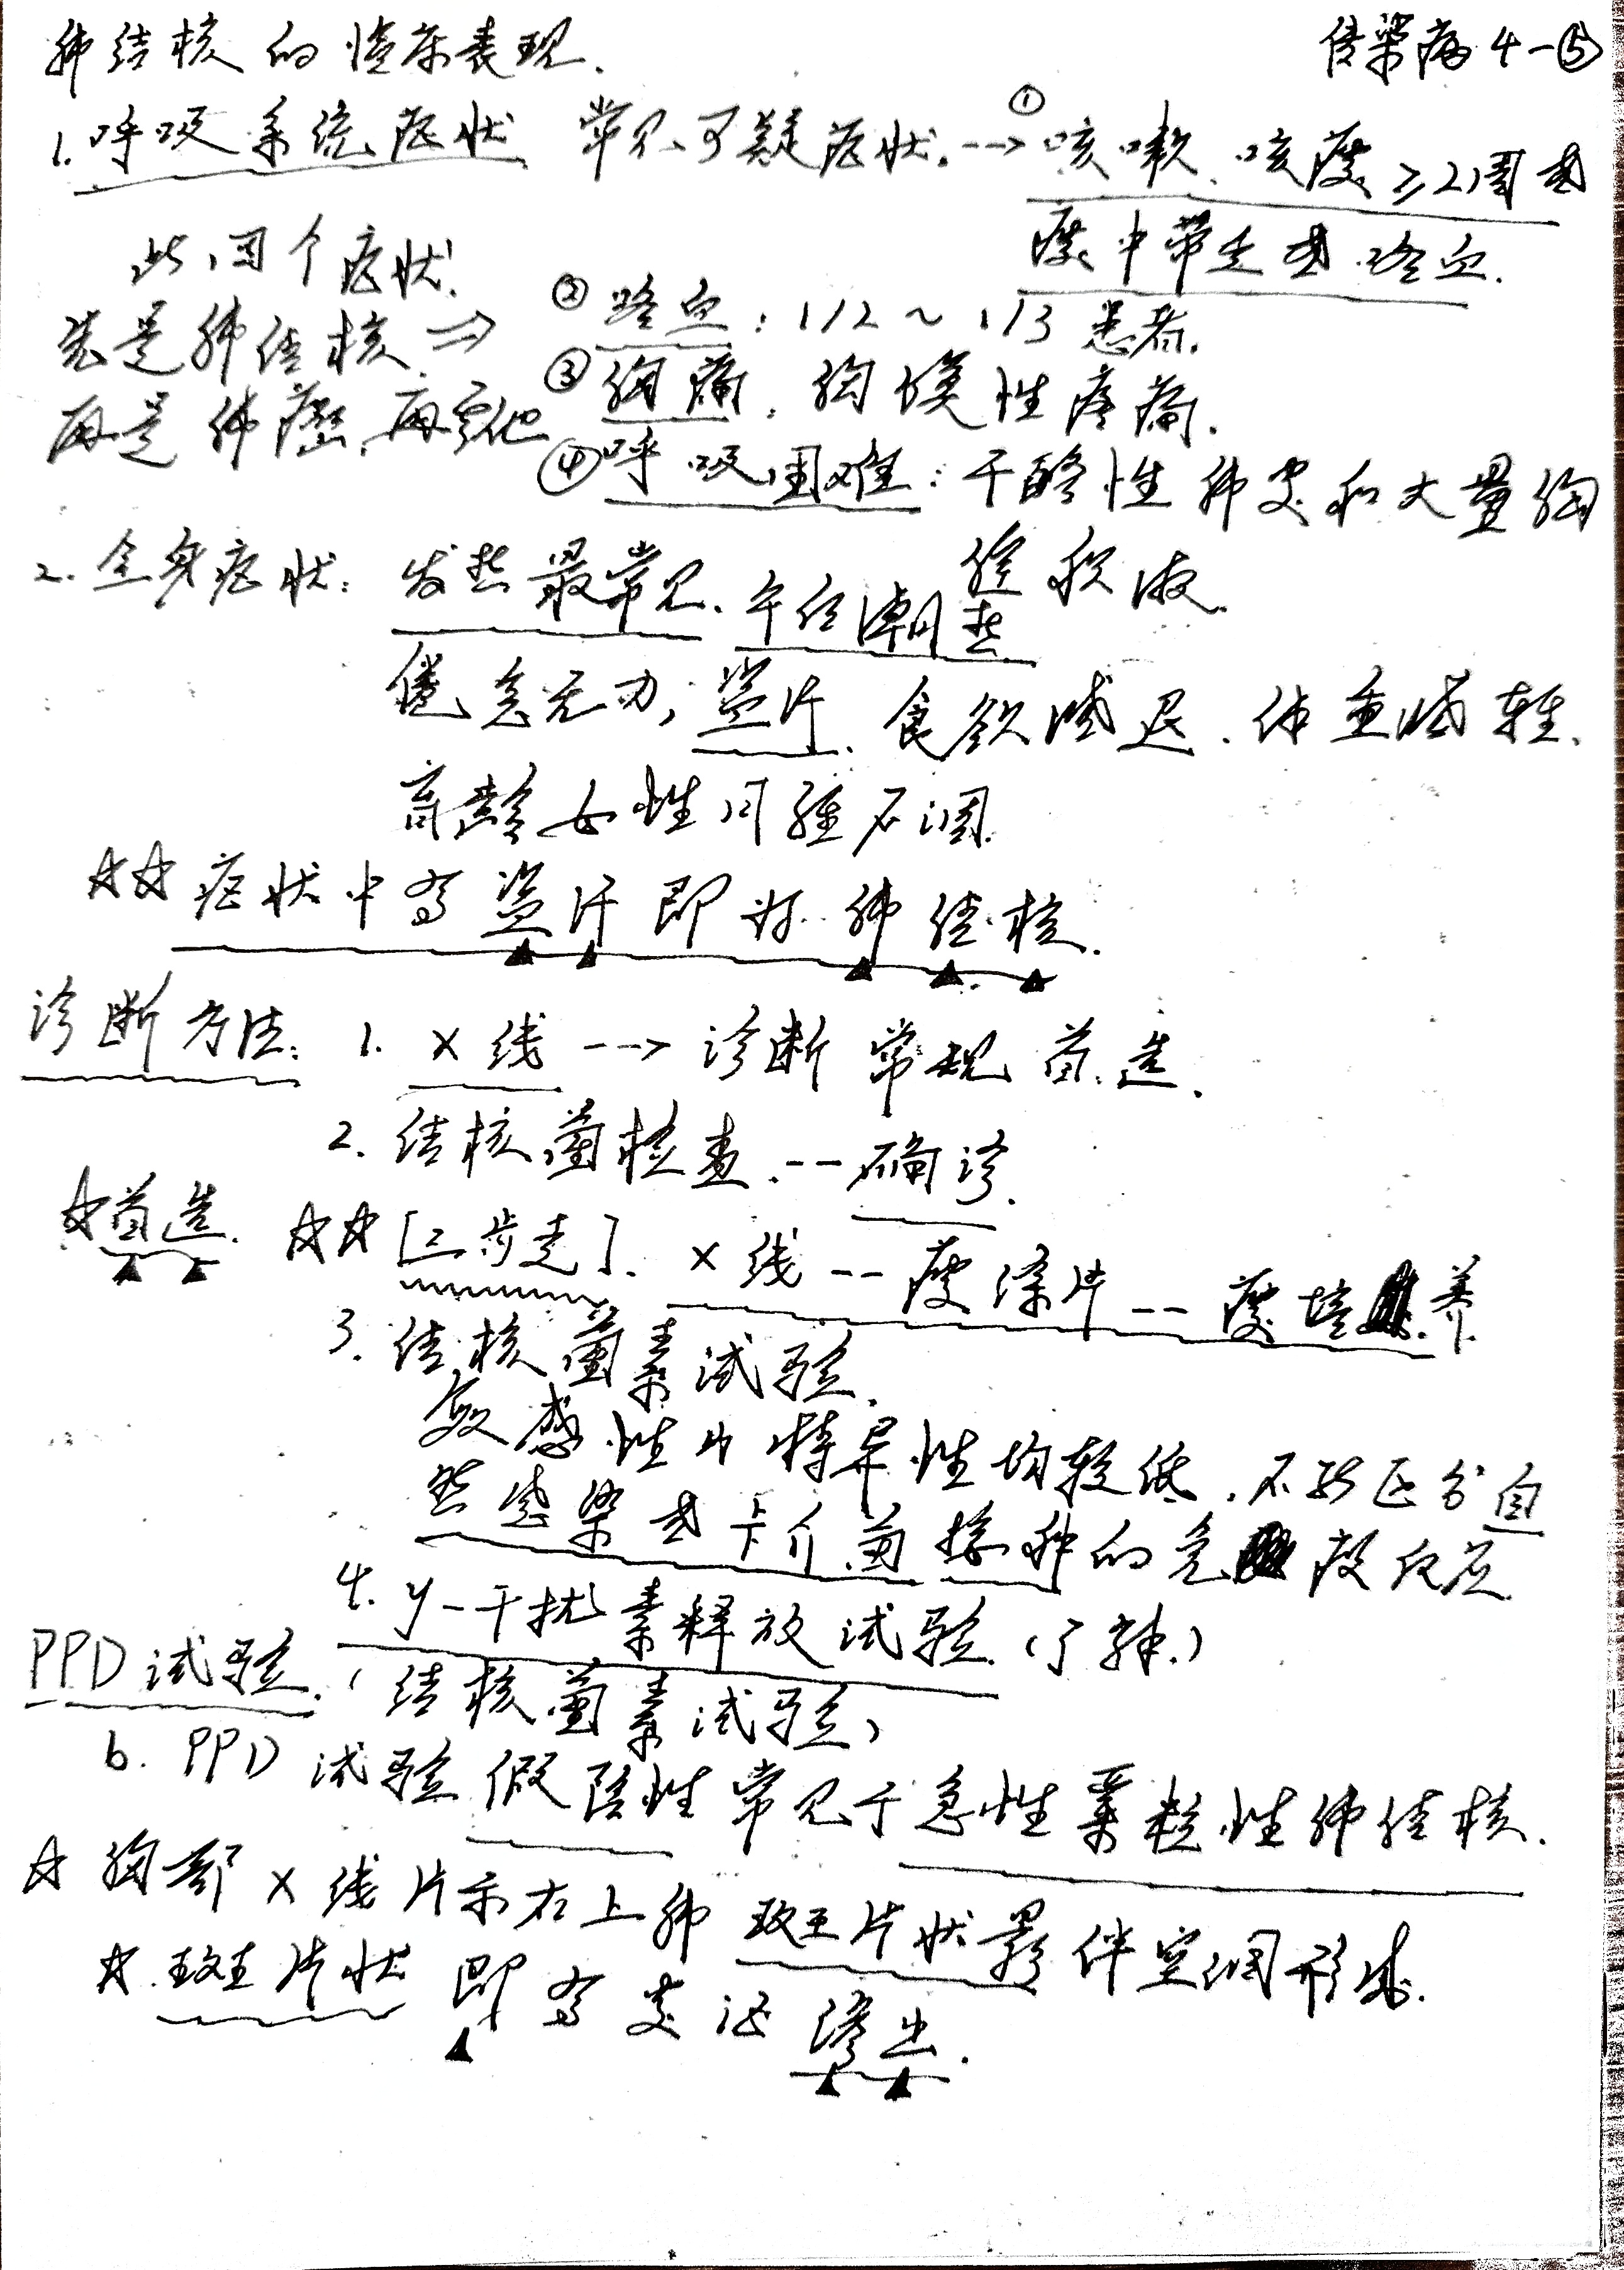 肺结核的临床表现.
传染病 4-⑤
1. 呼吸系统症状 常见可疑症状. --> ① 咳嗽、咳痰≥2周或
痰中带血或咯血.
此四个症状.
② 咯血: 1/2 ~ 1/3 患者.
先是肺结核 ⇒
③ 胸痛. 胸膜性疼痛.
再是肺癌, 再其他
④ 呼吸困难: 干酪性肺炎和大量胸
腔积液.
2. 全身症状: 发热最常见. 午后潮热
倦怠无力, 盗汗. 食欲减退. 体重减轻.
育龄女性月经不调.
☆☆ 症状中有盗汗即为肺结核.
诊断方法: 1. X线 --> 诊断常规首选.
2. 结核菌检查. -- 确诊.
☆首选. ☆☆ [三步走]. X线 -- 痰涂片 -- 痰培养
3. 结核菌素试验.
敏感性与特异性均较低. 不能区分自
然感染或卡介苗接种的免疫反应
4. γ-干扰素释放试验. (了解.)
PPD试验. (结核菌素试验)
b. PPD 试验假阴性常见于急性粟粒性肺结核.
☆ 胸部X线片示右上肺斑片状影伴空洞形成.
☆. 斑片状 即有炎症渗出.